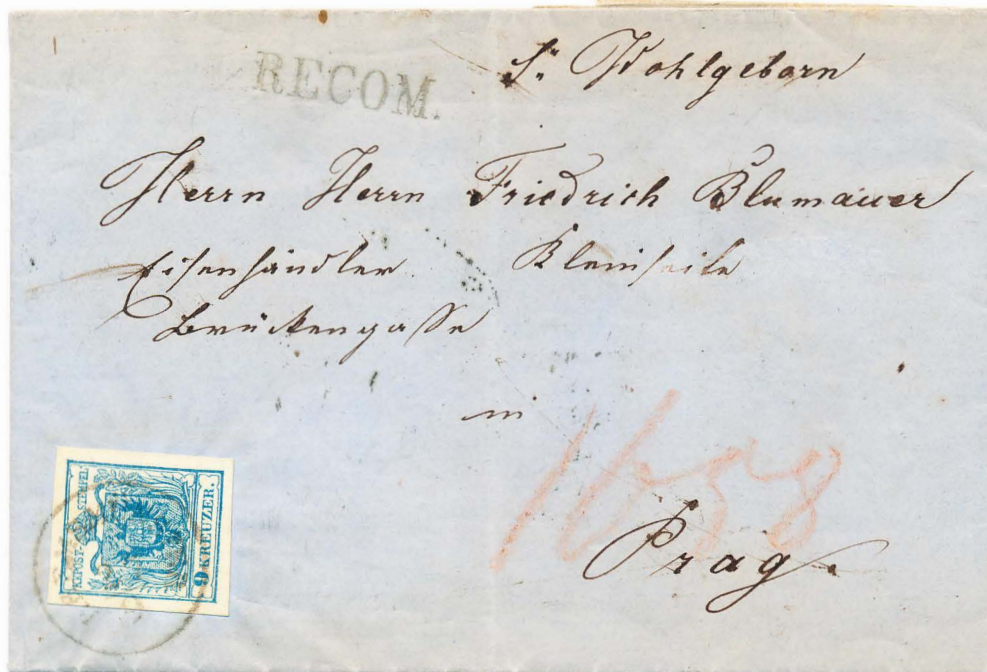 RECOM.
Sr Wohlgeborn
Herrn Herrn Friedrich Blumauer
Eisenhändler Kleinseite
Brückengasse
in
1658
Prag.
KKPOST-STEMPEL
9 KREUZER.